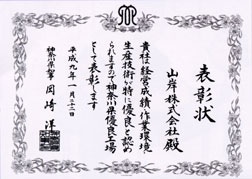 表彰状
山岸株式会社殿
貴社は経営成績、作業環境、
生産技術が特に優良と認め
られますので神奈川県優良工場
として表彰します
平成九年一月二十二日
神奈川県知事 岡崎洋